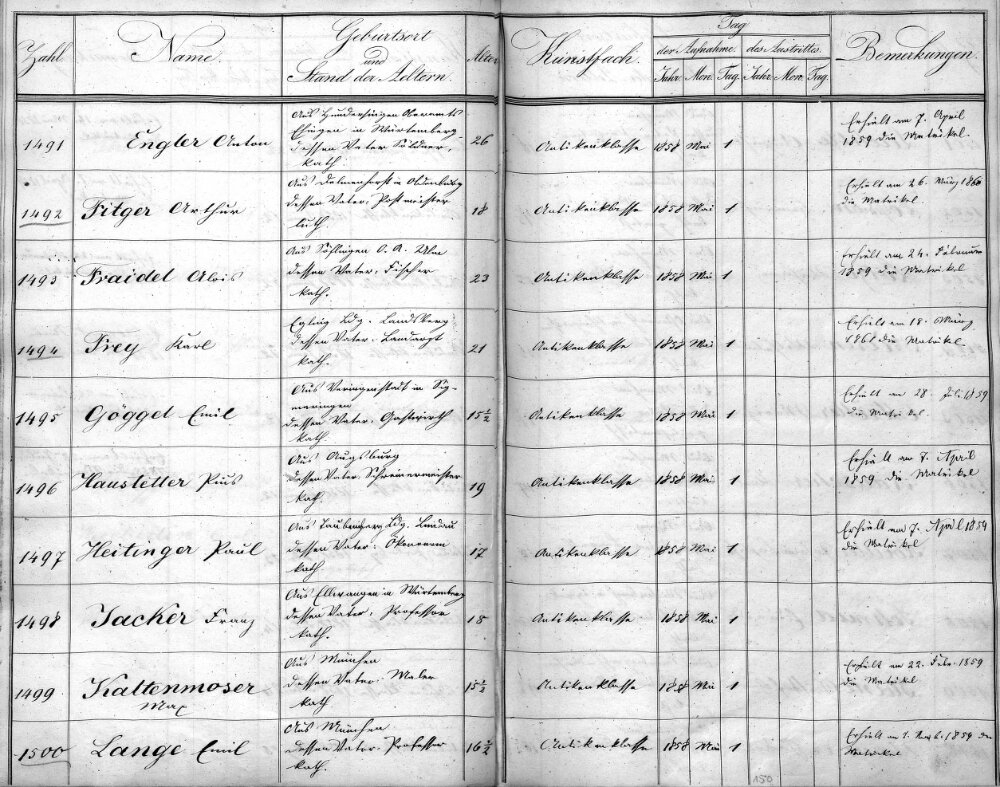 Zahl Name. Geburtsort und Stand der Aeltern. Alter Kunstfach. Tag der Aufnahme. des Austrittes. Bemerkungen.
Jahr Mon. Tag. Jahr. Mon. Tag.
1491 Engler Anton
Aus Hundersingen Oberamts
Ehingen in Würtemberg
dessen Vater Söldner,
kath.
26 Antikenklasse 1858 Mai 1
Erhielt am 7. April
1859 die Matrikel.
1492 Fitger Arthur
Aus Delmenhorst in Oldenburg
dessen Vater: Postmeister
luth.
18 Antikenklasse 1858 Mai 1
Erhielt am 26. März 1860
die Matrikel
1493 Fraidel Alois
Aus Söflingen O. A. Ulm
dessen Vater: Fischer
kath.
23 Antikenklasse 1858 Mai 1
Erhielt am 24. Februar
1859 die Matrikel
1494 Frey Karl
Egling Ldg. Landsberg
dessen Vater: Landarzt
kath.
21 Antikenklasse 1858 Mai 1
Erhielt am 18. März
1861 die Matrikel.
1495 Göggel Emil
Aus Veringenstadt in Sig-
maringen
dessen Vater: Gastwirth
kath.
15 1/2 Antikenklasse 1858 Mai 1
Erhielt am 28. Juli 1859
die Matrikel.
1496 Haustetter Pius
Aus Augsburg
dessen Vater: Schreinermeister
kath.
19 Antikenklasse 1858 Mai 1
Erhielt am 7. April
1859 die Matrikel
1497 Heitinger Paul
Aus Ldg. Landau
dessen Vater: Ökonom
kath.
17 Antikenklasse 1858 Mai 1
Erhielt am 7. April 1859
die Matrikel
1498 Jacker Franz
Aus Ellwangen in Würtemberg
dessen Vater: Professor
kath.
18 Antikenklasse 1858 Mai 1
1499 Kaltenmoser
Max
Aus München
dessen Vater: Maler
kath
15 1/2 Antikenklasse 1858 Mai 1
Erhielt am 22. Febr. 1859
die Matrikel
1500 Lange Emil
Aus München
dessen Vater: Professor
kath.
16 1/2 Antikenklasse 1858 Mai 1
Erhielt am 1. 1859 die
Matrikel.
150